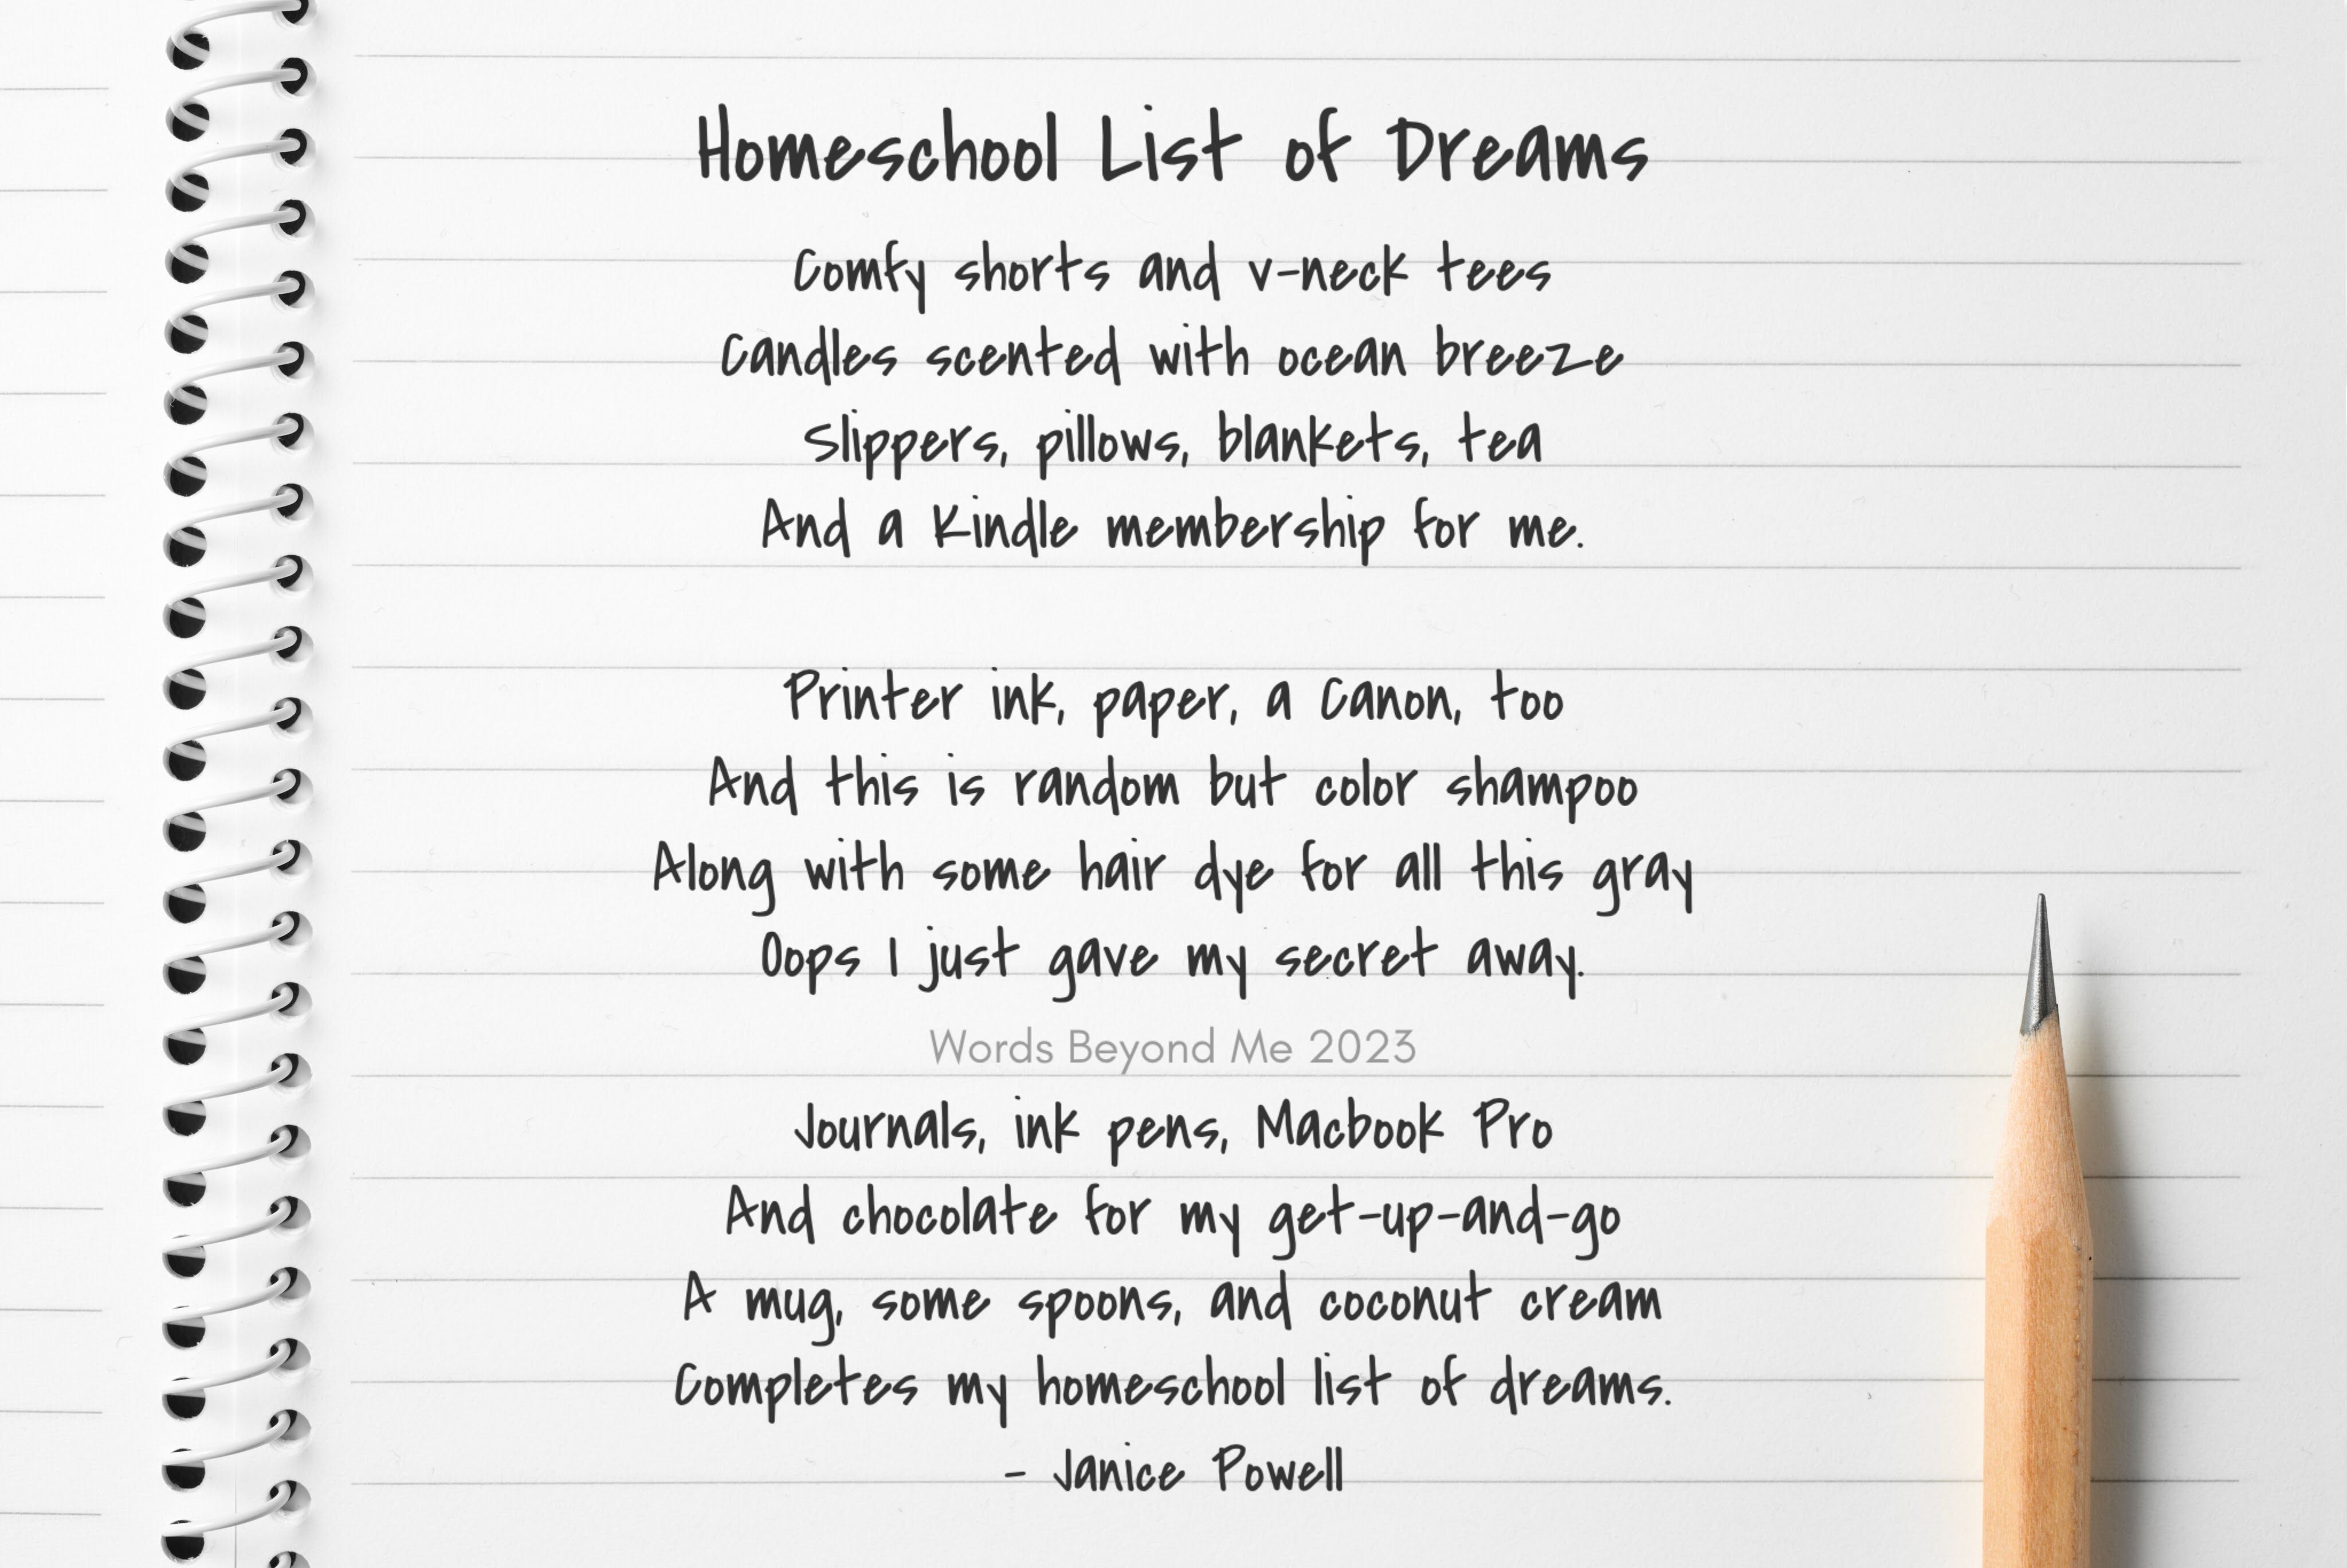 Homeschool List of Dreams
Comfy shorts and v-neck tees
Candles scented with ocean breeze
Slippers, pillows, blankets, tea
And a Kindle membership for me.
Printer ink, paper, a Canon, too
And this is random but color shampoo
Along with some hair dye for all this gray
Oops I just gave my secret away.
Words Beyond Me 2023
Journals, ink pens, Macbook Pro
And chocolate for my get-up-and-go
A mug, some spoons, and coconut cream
Completes my homeschool list of dreams.
- Janice Powell